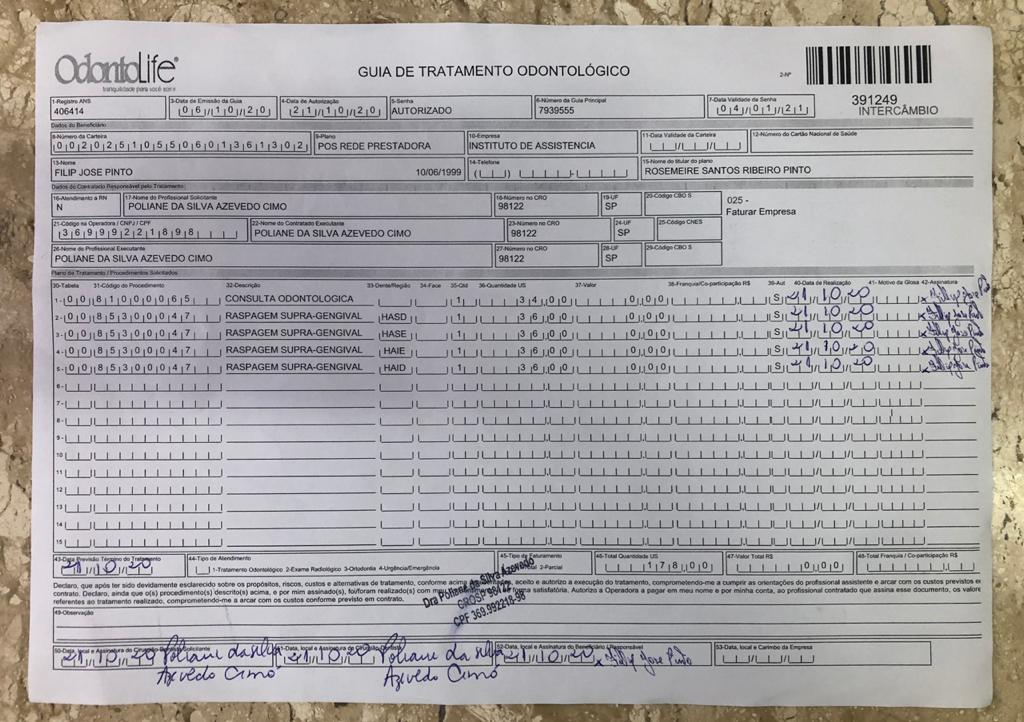 OdontoLife
tranquilidade para você sorrir
GUIA DE TRATAMENTO ODONTOLÓGICO
2-Nº
391249
INTERCÂMBIO
1-Registro ANS
406414
3-Data de Emissão da Guia
06/10/20
4-Data de Autorização
21/10/20
5-Senha
AUTORIZADO
6-Número da Guia Principal
7939555
7-Data Validade da Senha
04/01/21
Dados do Beneficiário
8-Número da Carteira
00202510550601361302
9-Plano
POS REDE PRESTADORA
10-Empresa
INSTITUTO DE ASSISTENCIA
11-Data Validade da Carteira
12-Número do Cartão Nacional de Saúde
13-Nome
FILIP JOSE PINTO 10/06/1999
14-Telefone
15-Nome do titular do plano
ROSEMEIRE SANTOS RIBEIRO PINTO
Dados do Contratado Responsável pelo Tratamento
16-Atendimento a RN
N
17-Nome do Profissional Solicitante
POLIANE DA SILVA AZEVEDO CIMO
18-Número no CRO
98122
19-UF
SP
20-Código CBO S
025 -
Faturar Empresa
21-Código na Operadora / CNPJ / CPF
36999221898
22-Nome do Contratado Executante
POLIANE DA SILVA AZEVEDO CIMO
23-Número no CRO
98122
24-UF
SP
25-Código CNES
26-Nome do Profissional Executante
POLIANE DA SILVA AZEVEDO CIMO
27-Número no CRO
98122
28-UF
SP
29-Código CBO S
Plano de Tratamento / Procedimentos Solicitados
30-Tabela 31-Código do Procedimento 32-Descrição 33-Dente/Região 34-Face 35-Qtd 36-Quantidade US 37-Valor 38-Franquia/Co-participação R$ 39-Aut 40-Data de Realização 41- Motivo da Glosa 42-Assinatura
1- 00 81000065 CONSULTA ODONTOLOGICA 1 34,00 0,00 S 21/10/20
2- 00 85300047 RASPAGEM SUPRA-GENGIVAL HASD 1 36,00 0,00 S 21/10/20
3- 00 85300047 RASPAGEM SUPRA-GENGIVAL HASE 1 36,00 0,00 S 21/10/20
4- 00 85300047 RASPAGEM SUPRA-GENGIVAL HAIE 1 36,00 0,00 S 21/10/20
5- 00 85300047 RASPAGEM SUPRA-GENGIVAL HAID 1 36,00 0,00 S 21/10/20
6-
7-
8-
9-
10
11
12
13
14
15
43-Data Previsão Término do Tratamento
21/10/20
44-Tipo de Atendimento
1-Tratamento Odontológico 2-Exame Radiológico 3-Ortodontia 4-Urgência/Emergência
45-Tipo de Faturamento
2-Parcial
46-Total Quantidade US
178,00
47-Valor Total R$
0,00
48-Total Franquia / Co-participação R$
Declaro, que após ter sido devidamente esclarecido sobre os propósitos, riscos, custos e alternativas de tratamento, conforme acima aceito e autorizo a execução do tratamento, comprometendo-me a cumprir as orientações do profissional assistente e arcar com os custos previstos em
contrato. Declaro, ainda que o(s) procedimento(s) descrito(s) acima, e por mim assinado(s), foi/foram realizado(s) com forma satisfatória. Autorizo a Operadora a pagar em meu nome e por minha conta, ao profissional contratado que assina esse documento, os valores
referentes ao tratamento realizado, comprometendo-me a arcar com os custos conforme previsto em contrato.
Dra Poliane da Silva Azevedo
CROSP 98122
CPF 369.992218-98
49-Observação
50-Data, local e Assinatura do Cirurgião-Dentista Solicitante
21/10/20 Poliane da Silva
Azevedo Cimo
51-Data, local e Assinatura do Cirurgião-Dentista
21/10/20 Poliane da Silva
Azevedo Cimo
52-Data, local e Assinatura do Beneficiário / Responsável
21/10/20 x Filip Jose Pinto
53-Data, local e Carimbo da Empresa